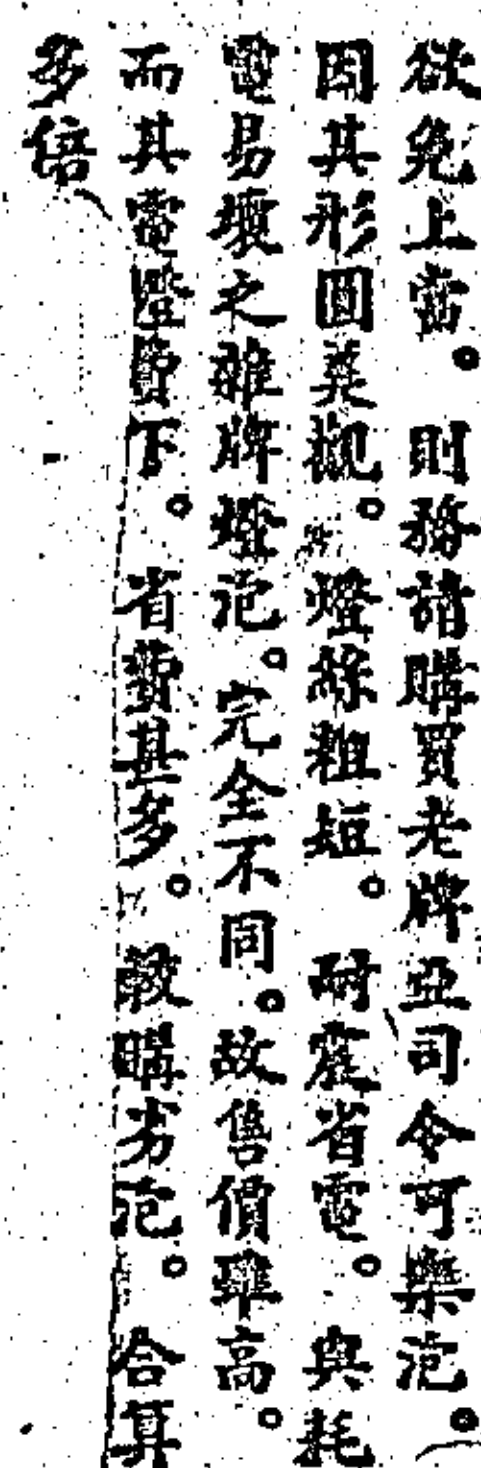 欲免上當。則務請購買老牌亞司令可樂泡。
因其形圓美觀。燈絲粗短。耐震省電。與耗
電易壞之雜牌燈泡。完全不同。故售價雖高。
而其電費下。省費甚多。較購劣泡。合算
多倍